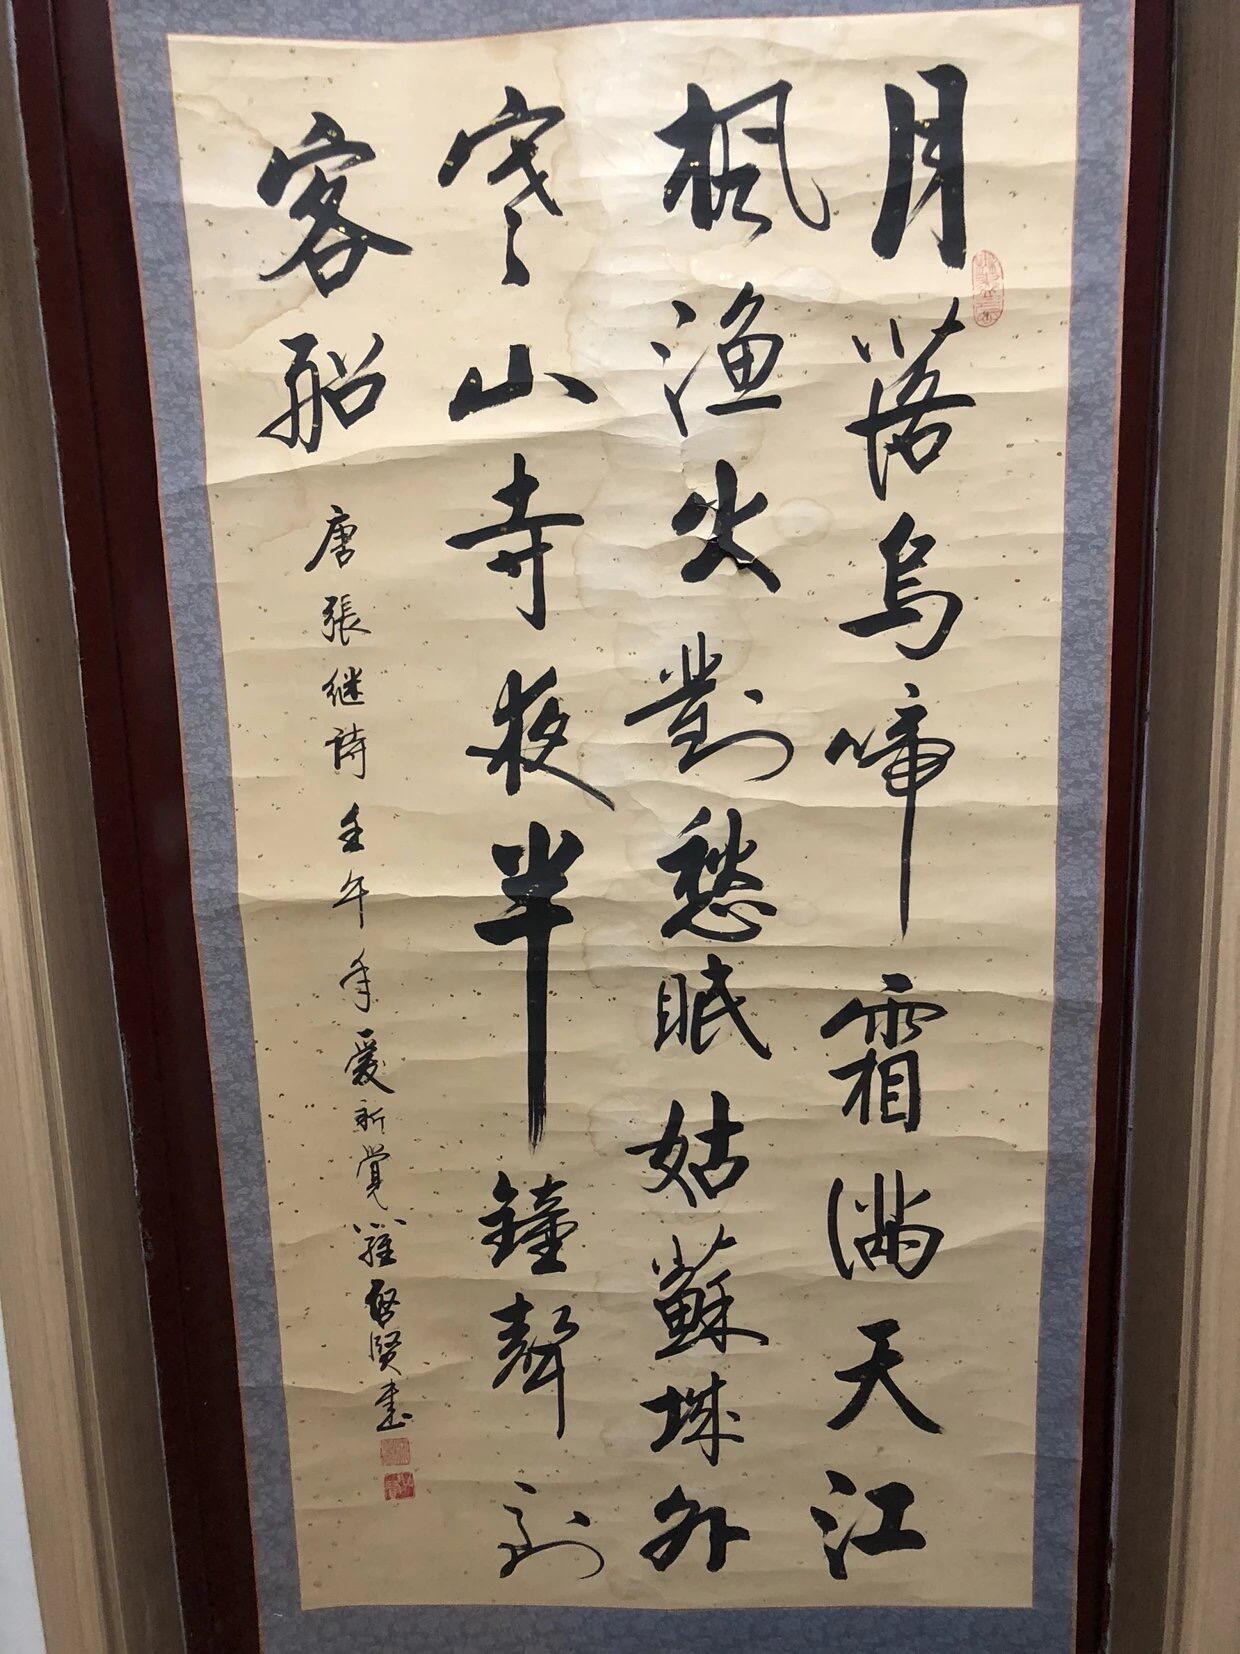 月落烏啼霜滿天江
楓漁火對愁眠姑蘇城外
寒山寺夜半鐘聲到
客船
唐張继詩 壬午年愛新覺羅啓賢書